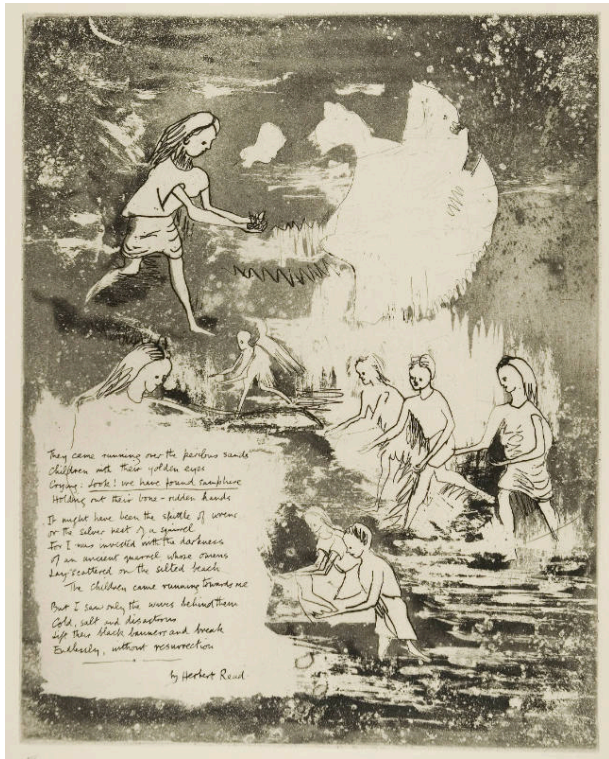 They came running over the perilous sands
Children with their golden eyes
Crying: Look! we have found samphire
Holding out their bone-ridden hands
It might have been the spittle of wrens
or the silver nest of a squirrel
For I was invested with the darkness
of an ancient quarrel whose omens
Lay scattered on the silted beach
The children came running towards me
But I saw only the waves behind them
Cold, salt and disastrous
Lift their black banners and break
Endlessly, without resurrection
by Herbert Read